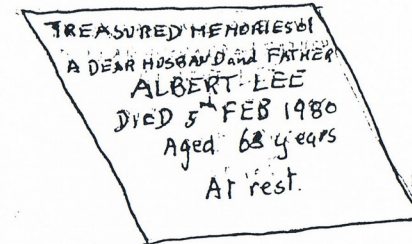 TREASURED MEMORIES of
A DEAR HUSBAND and FATHER
ALBERT LEE
DIED 5th FEB 1980
Aged 63 years
At rest.